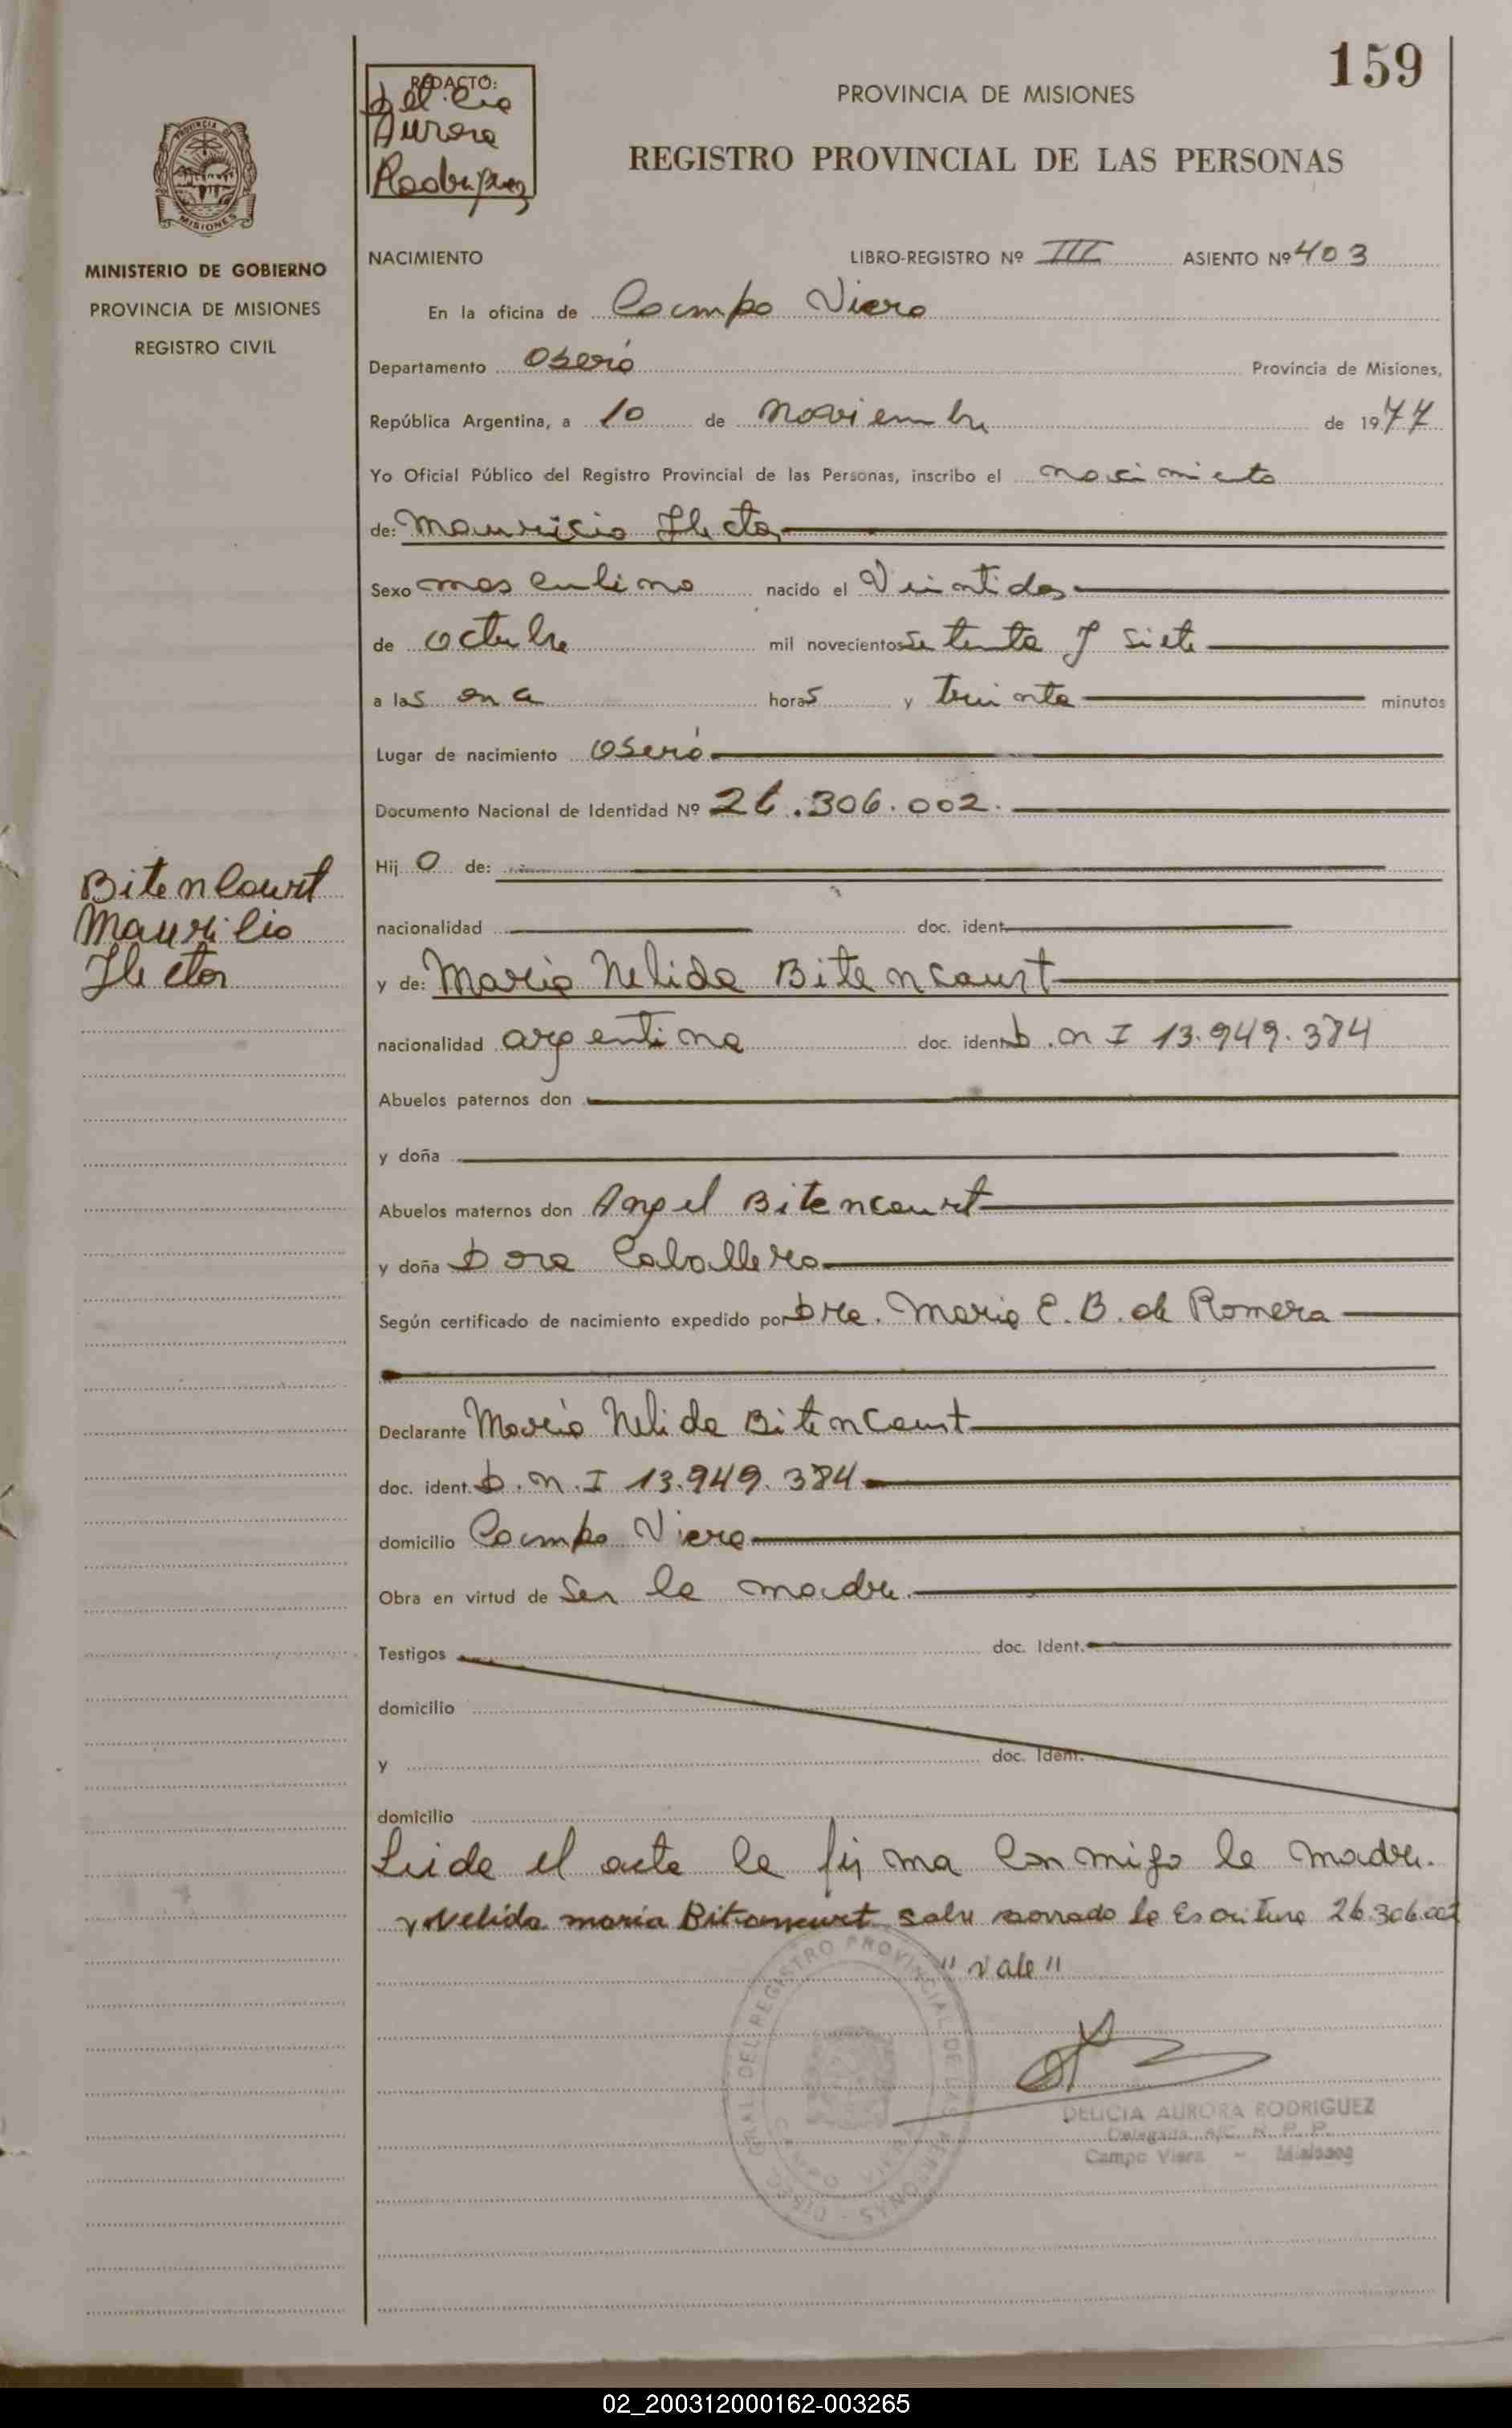 159
REDACTO:
Delicia
Aurora
Rodriguez
PROVINCIA DE MISIONES
REGISTRO PROVINCIAL DE LAS PERSONAS
PROVINCIA DE
MISIONES
MINISTERIO DE GOBIERNO
PROVINCIA DE MISIONES
REGISTRO CIVIL
NACIMIENTO LIBRO-REGISTRO Nº III ASIENTO Nº 403
En la oficina de Campo Viera
Departamento Oberá Provincia de Misiones,
República Argentina, a 10 de noviembre de 1977
Yo Oficial Público del Registro Provincial de las Personas, inscribo el nacimiento
de: Mauricio Hector
Sexo masculino nacido el Veintidos
de octubre mil novecientos setenta y siete
a las horas y treinta minutos
Lugar de nacimiento Oberá
Documento Nacional de Identidad Nº 26.306.002.
Hijo de:
nacionalidad doc. ident.
Bitencourt
Mauricio
Hector
y de: Maria Nelida Bitencourt
nacionalidad argentina doc. ident. D.N I 13.949.384
Abuelos paternos don
y doña
Abuelos maternos don Angel Bitencourt
y doña Dora Caballero
Según certificado de nacimiento expedido por Dra. Maria E. B. de Romera
Declarante Maria Nelida Bitencourt
doc. ident. D.N.I 13.949.384
domicilio Campo Viera
Obra en virtud de Ser la madre.
Testigos doc. Ident.
domicilio
y doc. Ident.
domicilio
Leida el acta la firma conmigo la madre.
Nelida maria Bitencourt borrado la Escritura 26.306.002
"Vale"
DELICIA AURORA RODRIGUEZ
Delegada A/C. R. P. P.
Campo Viera - Misiones
02_200312000162-003265